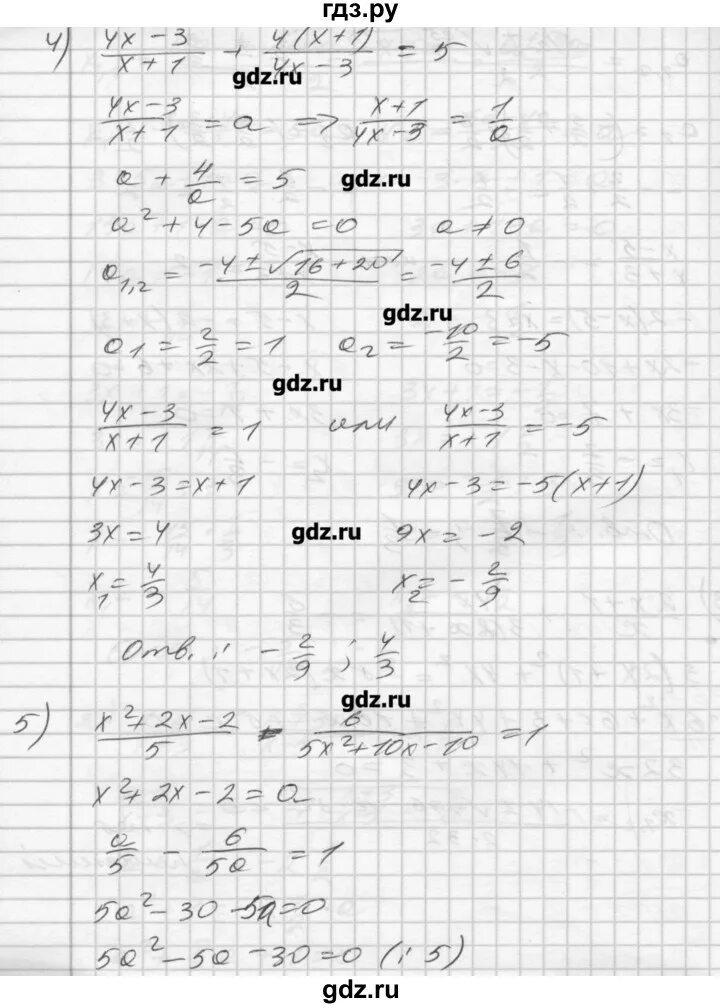 гдз.ру
4) (4x-3)/(x+1) + 4(x+1)/(4x-3) = 5
gdz.ru
(4x-3)/(x+1) = a => (x+1)/(4x-3) = 1/a
a + 4/a = 5
gdz.ru
a² + 4 - 5a = 0 a ≠ 0
a₁,₂ = (-4 ± √(16+20))/2 = (-4 ± 6)/2
gdz.ru
a₁ = 2/2 = 1 a₂ = -10/2 = -5
gdz.ru
(4x-3)/(x+1) = 1 или (4x-3)/(x+1) = -5
4x-3 = x+1 4x-3 = -5(x+1)
3x = 4 gdz.ru 9x = -2
x₁ = 4/3 x₂ = -2/9
Отв.: -2/9 ; 4/3
gdz.ru
5) (x²+2x-2)/5 - 6/(5x²+10x-10) = 1
x²+2x-2 = a
a/5 - 6/5a = 1
5a² - 30 - 5a = 0
5a² - 5a - 30 = 0 (: 5)
gdz.ru